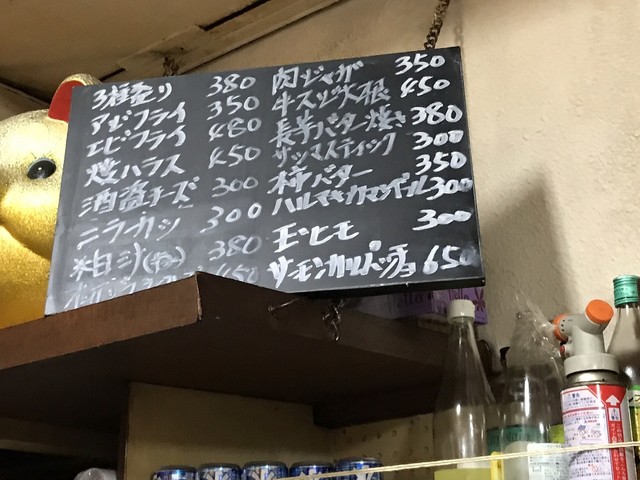 3種盛り 380
アジフライ 350
エビフライ 480
焼ハラス 450
酒盗チーズ 300
ニラカツ 300
380
450
肉ジャガ 350
牛スジ大根 450
長芋バター焼き 380
サツマスティック 300
柿バター 350
ハルマキカマンベール 300
エシヒモ 300
サーモンカルパッチョ 650